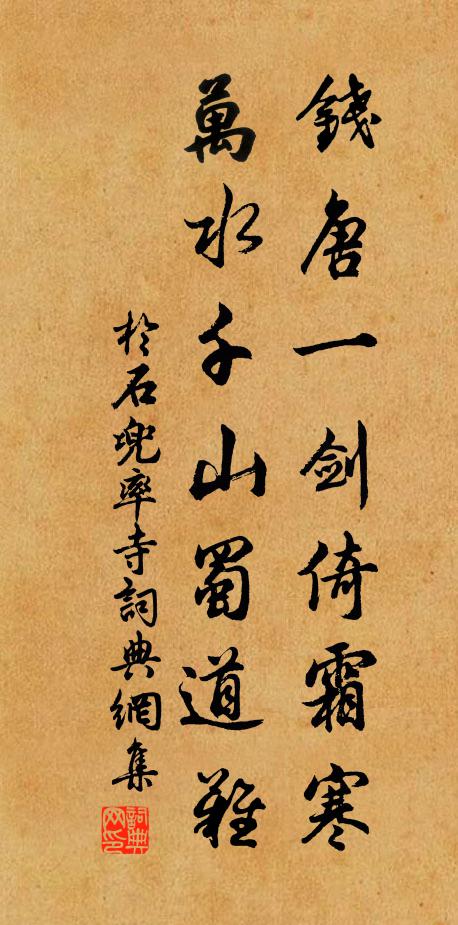 錢唐一劍倚霜寒
萬水千山蜀道難
於石兜率寺詞典網集
詞典网印